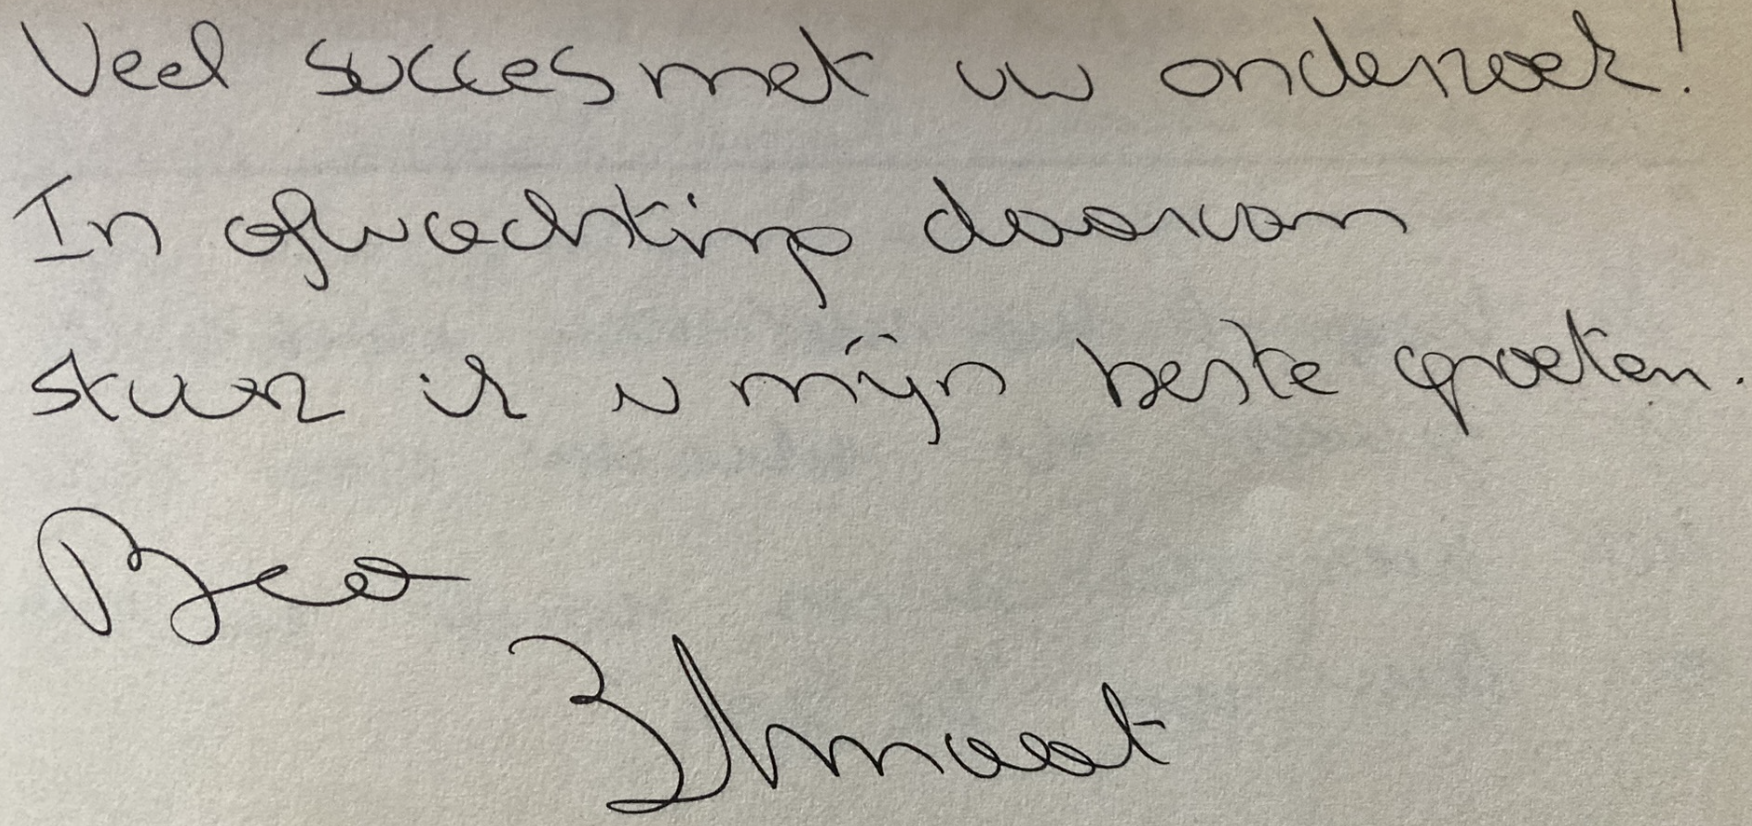 Veel succes met uw onderzoek!
In afwachting daarvan
stuur ik u mijn beste groeten.